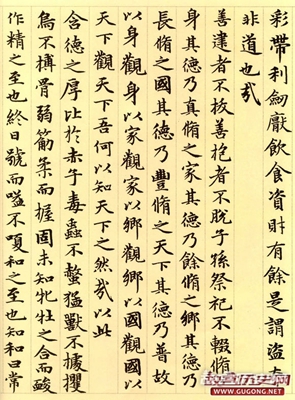 彩帶利劒厭飲食資財有餘是謂盜夸
非道也哉
善建者不拔善抱者不脫子孫祭祀不輟脩
身其德乃真脩之家其德乃餘脩之鄉其德乃
長脩之國其德乃豐脩之天下其德乃普故
以身觀身以家觀家以鄉觀鄉以國觀國以
天下觀天下吾何以知天下之然哉以此
含德之厚比於赤子毒蟲不螫猛獸不據攫
鳥不搏骨弱筋柔而握固未知牝牡之合而酸
作精之至也終日號而嗌不嗄和之至也知和曰常
www.GUGONG.net